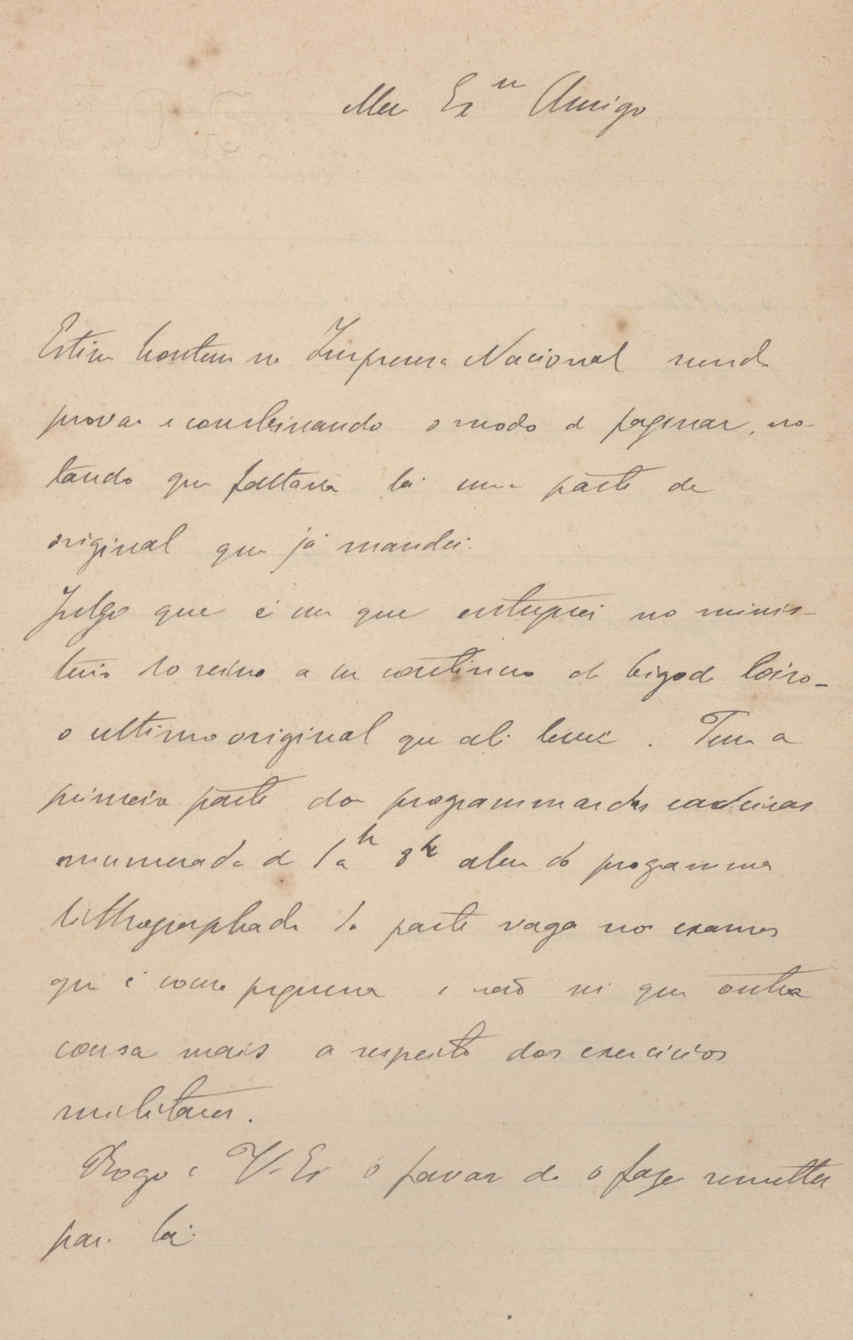 Meu Ex.mo Amigo
Estive hontem na Imprensa Nacional vendo
provas e combinando o modo de paginar, no-
tando que faltava lá uma parte de
original que já mandei.
Julgo que é um que entreguei no minis-
terio do reino a um continuo de bigode loiro -
o ultimo original que ali levei. Tem a
primeira parte dos programmas das cadeiras
enumeradas de 1a 8 alem do programma
lithographado da parte vaga nos exames
que é cousa pequena e não sei que outra
cousa mais a respeito dos exercicios
militares.
Rogo a V. Ex o favor de o fazer remetter
para lá.